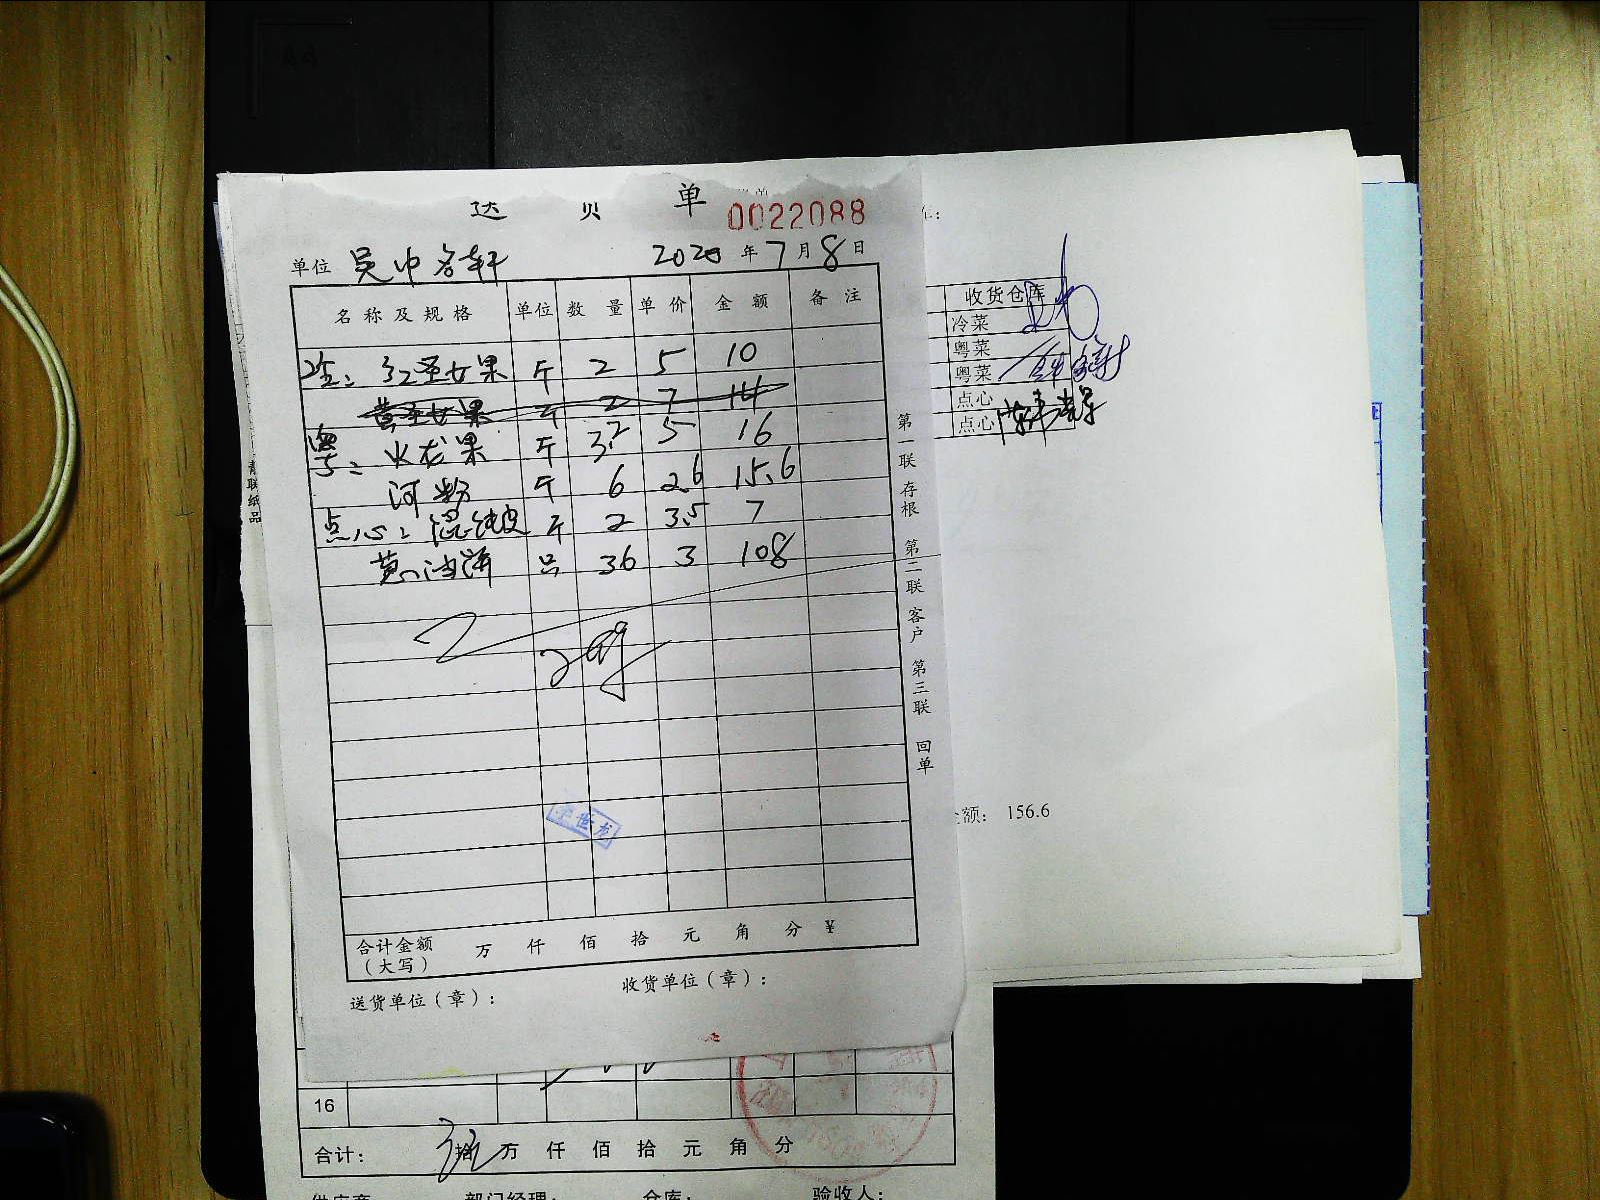 单
0022088
单位 吴中名轩 2020 年 7 月 8 日
名称及规格 单位 数量 单价 金额 备注
红圣女果 斤 2 5 10
黄圣女果 斤 2 7 14
粤: 火龙果 斤 3.2 5 16
河粉 斤 6 2.6 15.6
点心: 混沌皮 斤 2 3.5 7
黄油饼 只 36 3 108
第一联 存根 第二联 客户 第三联 回单
合计金额 万 仟 佰 拾 元 角 分 ¥
(大写)
送货单位(章): 收货单位(章):
收货仓库
冷菜
粤菜
粤菜
点心
点心
额: 156.6
青联纸品
16
合计: 拾 万 仟 佰 拾 元 角 分
部门经理: 仓库: 验收人: